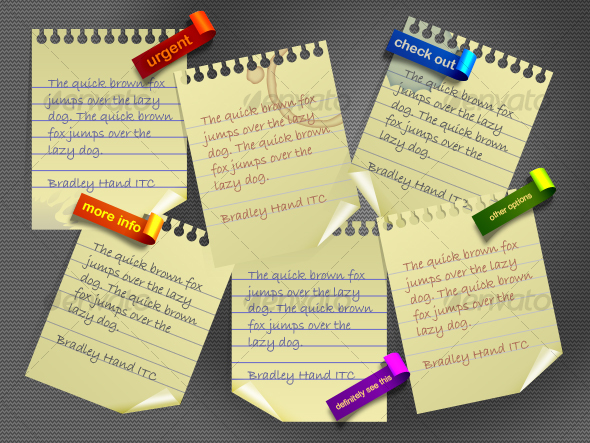 urgent
The quick brown fox
jumps over the lazy
dog. The quick brown
fox jumps over the
lazy dog.
Bradley Hand ITC
The quick brown fox
jumps over the lazy
dog. The quick brown
fox jumps over the
lazy dog.
Bradley Hand ITC
check out
The quick brown fox
jumps over the lazy
dog. The quick brown
fox jumps over the
lazy dog.
Bradley Hand ITC
more info
The quick brown fox
jumps over the lazy
dog. The quick brown
fox jumps over the
lazy dog.
Bradley Hand ITC
The quick brown fox
jumps over the lazy
dog. The quick brown
fox jumps over the
lazy dog.
Bradley Hand ITC
definitely see this
other options
The quick brown fox
jumps over the lazy
dog. The quick brown
fox jumps over the
lazy dog.
Bradley Hand ITC